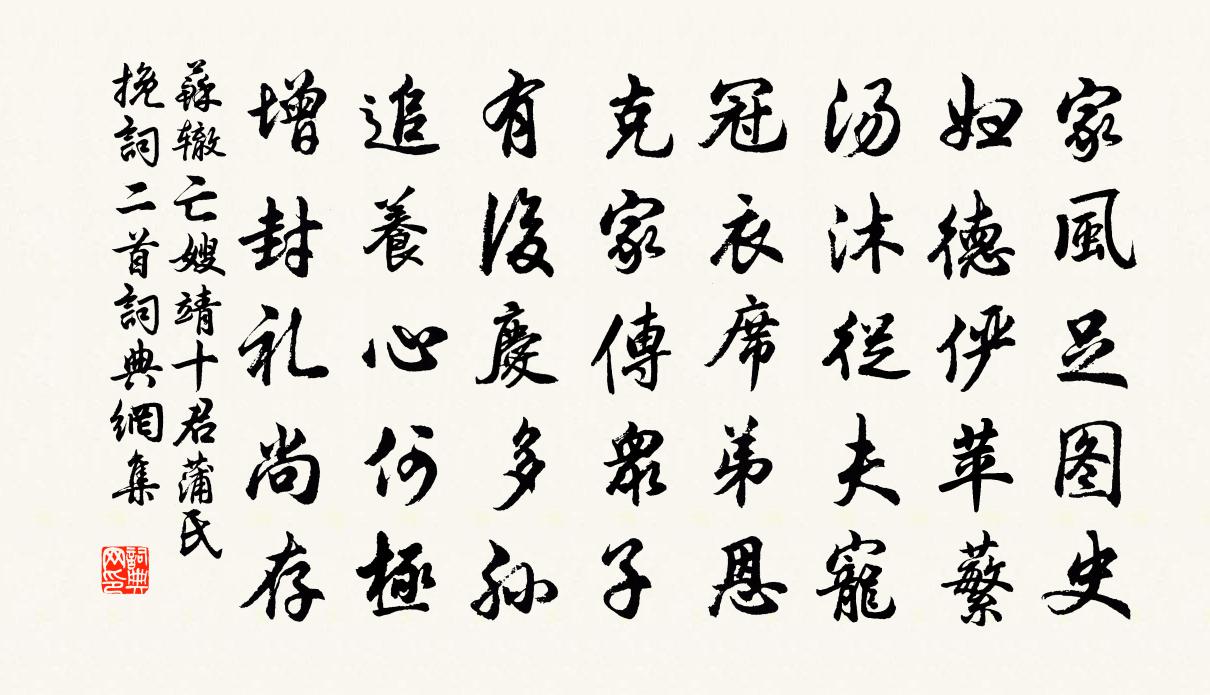 家風足图史
妇德俨苹蘩
汤沐從夫寵
冠衣席弟恩
克家傳眾子
有後慶多孙
追養心何極
增封礼尚存
蘇辙亡嫂靖十君蒲氏
挽詞二首詞典網集
詞典网印